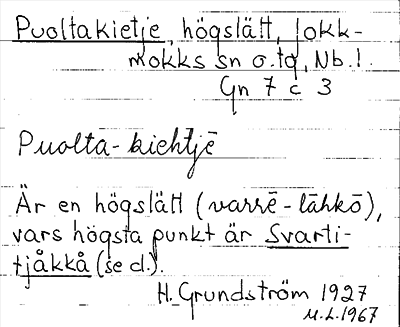 Puoltakietje, högslätt, Jokk-
mokks sn o. tg, Nb. l.
Gn 7 c 3
Puolta-kiehtjē
Är en högslätt (varrē-lāhkō),
vars högsta punkt är Svarti-
tjåkkå (se d.).
H. Grundström 1927
M.L. 1967